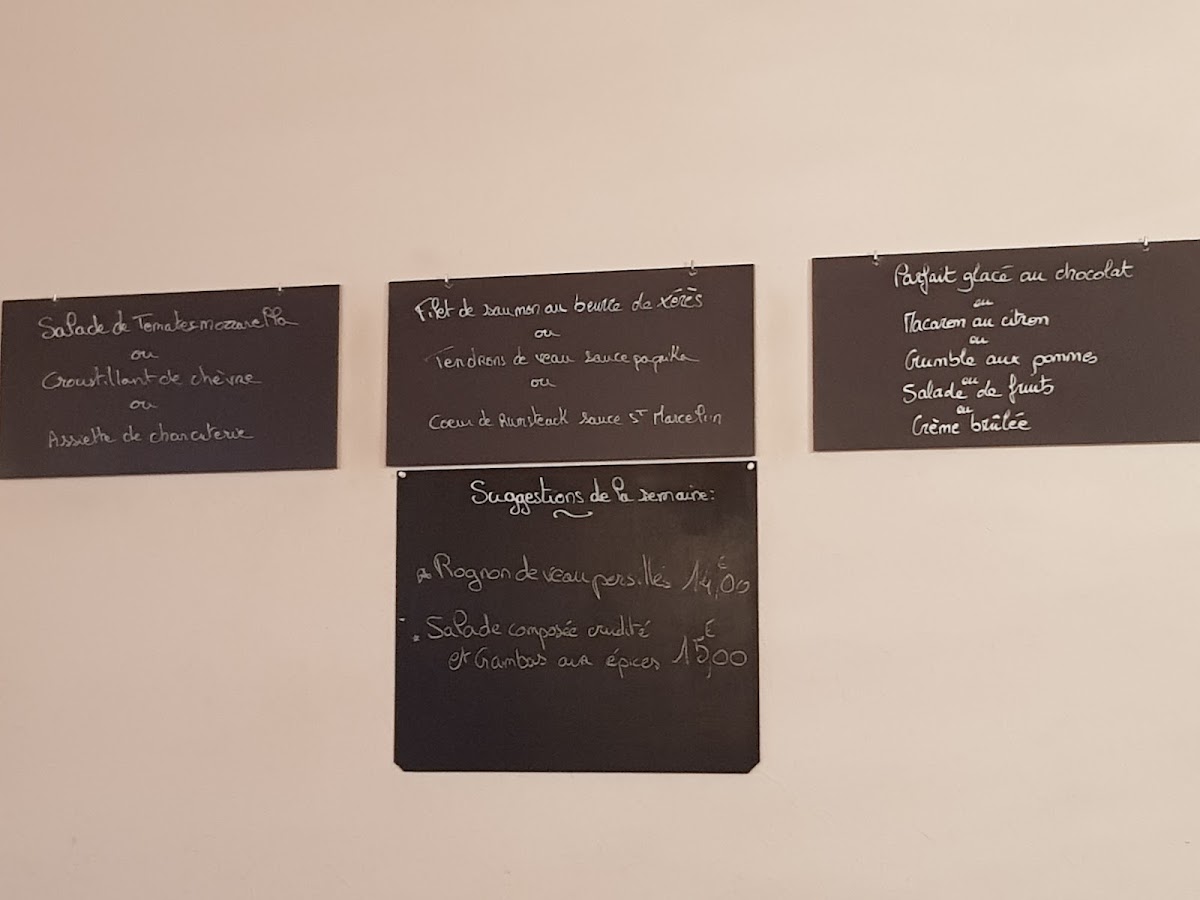 Salade de Tomates mozzarella
ou
Croustillant de chèvre
ou
Assiette de charcuterie
Filet de saumon au beurre de xérès
ou
Tendrons de veau sauce paprika
ou
Coeur de Rumsteack sauce ST Marcellin
Parfait glacé au chocolat
ou
Macaron au citron
ou
Crumble aux pommes
ou
Salade de fruits
ou
Crème brûlée
Suggestions de la semaine:
* Rognon de veau persillés 14,00€
* Salade composée crudité
et Gambas aux épices 15,00€